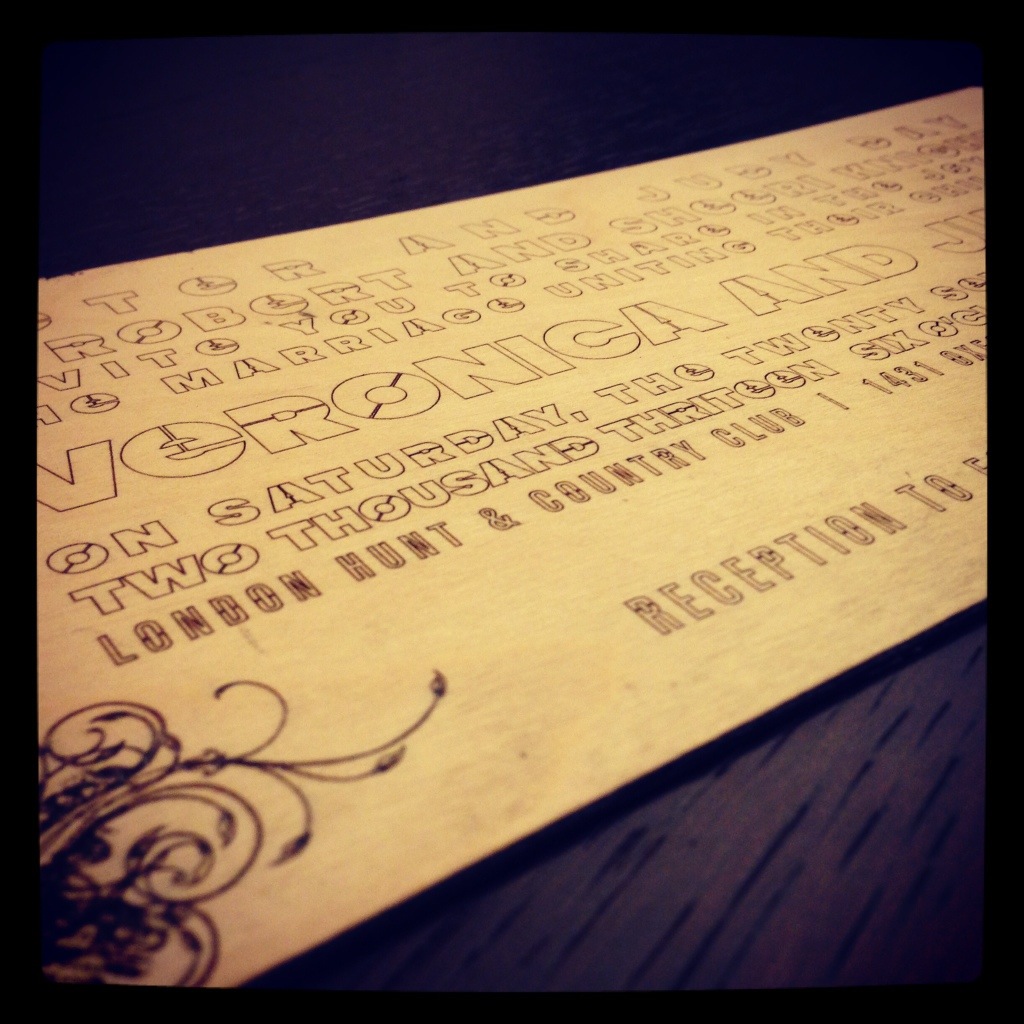 AND JUDY DAY
ROBERT AND SHEERI
YOU TO SHARE IN THE
MARRIAGE UNITING THEIR
VERONICA AND
ON SATURDAY, THE TWENTY
TWO THOUSAND THRITEEN SIX
LONDON HUNT & COUNTRY CLUB | 1431
RECEPTION TO